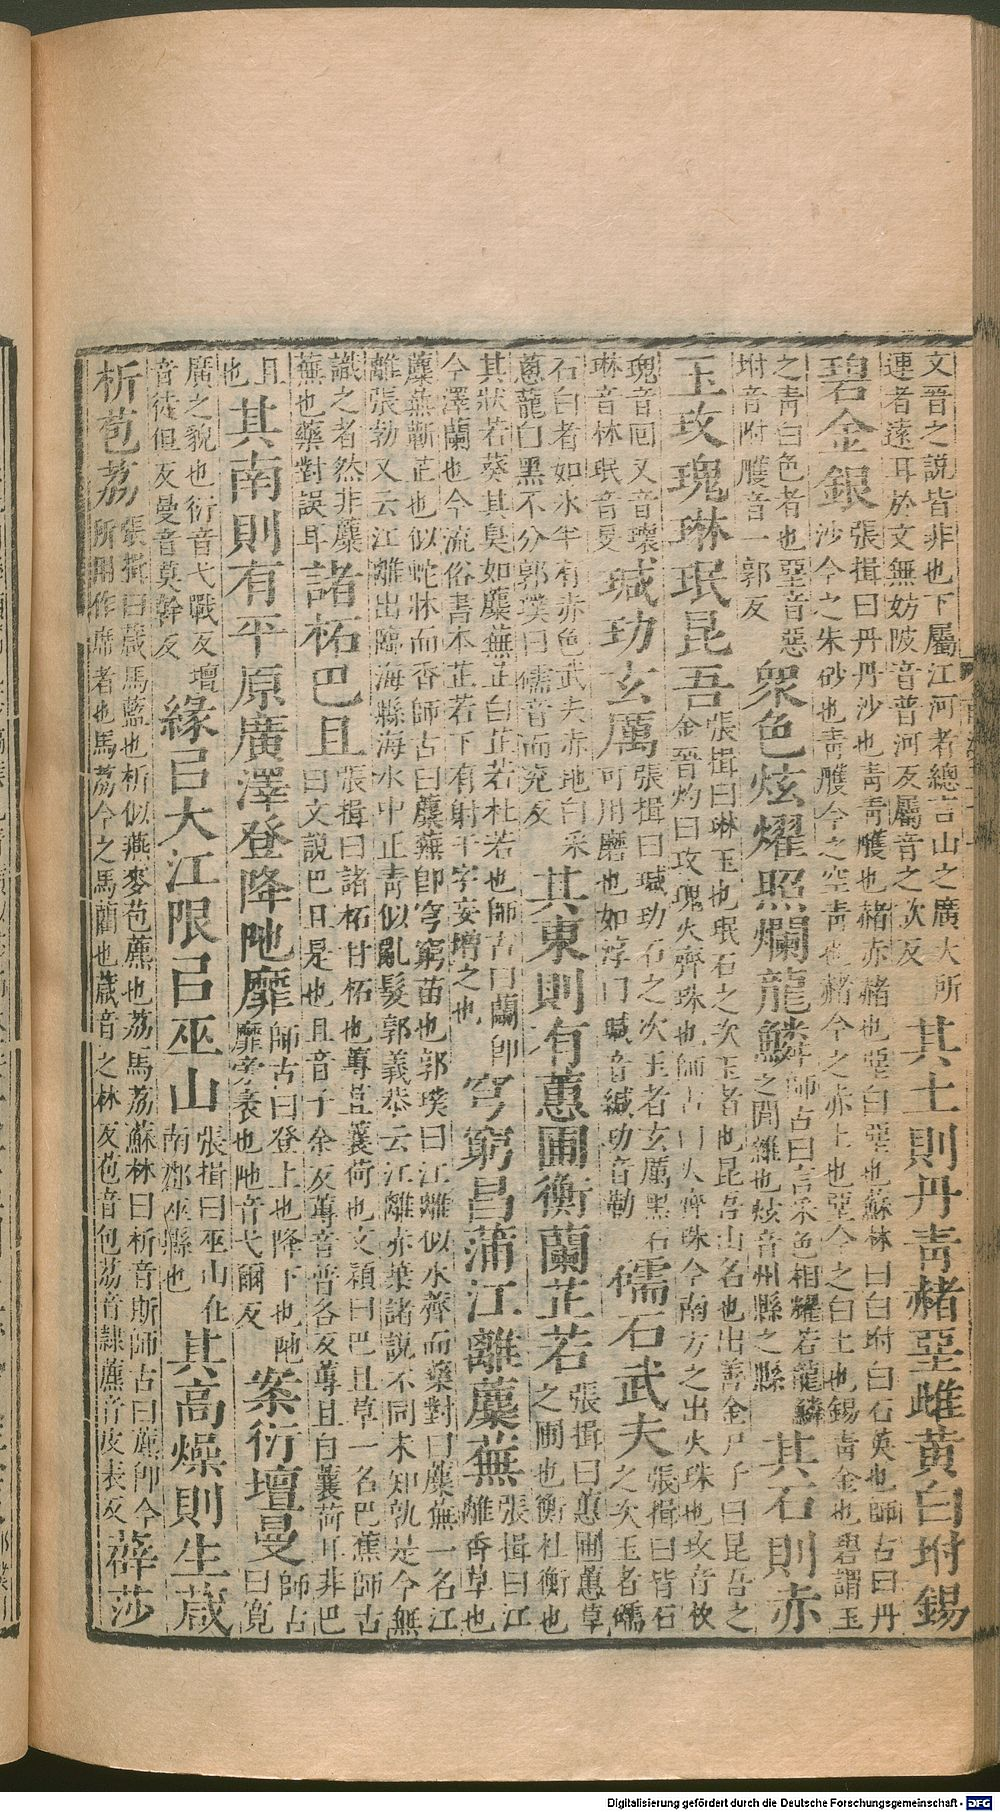 文晉之說皆非也下屬江河者總言山之廣大所連者遠耳於文無妨陂音普河反屬音之欠反其土則丹青赭堊雌黃白坿錫
碧金銀張揖曰丹丹沙也青青雘也赭赤赭也堊白堊也蘇林曰白坿白石英也師古曰丹沙今之朱砂也青雘今之空青也赭今之赤土也堊今之白土也錫青金也碧謂玉
之青白色者也堊音惡坿音附雘音一郭反眾色炫燿照爛龍鱗師古曰言采色相耀若龍鱗之間雜也炫音州縣之縣其石則赤
玉玫瑰琳珉昆吾張揖曰琳玉也珉石之次玉者也昆吾山名也出善金尸子曰昆吾之金晉灼曰玫瑰火齊珠也師古曰火齊珠今南方之出火珠也玫音枚
瑰音回又音瓌琳音林珉音旻瑊玏玄厲張揖曰瑊玏石之次玉者玄厲黑石可用磨也如淳曰瑊音緘玏音勒礝石武夫張揖曰皆石之次玉者礝
石白者如冰半有赤色武夫赤地白采蔥蘢白黑不分郭璞曰礝音而兗反其東則有蕙圃衡蘭芷若張揖曰蕙圃蕙草之圃也衡杜衡也
其狀若葵其臭如麋蕪芷白芷若杜若也師古曰蘭即今澤蘭也今流俗書本芷若下有射干字妄增之也穹窮昌蒲江離麋蕪張揖曰江離香草也
麋蕪蘄芷也似蛇牀而香師古曰麋蕪即穹窮苗也郭璞曰江離似水薺而藥對曰麋蕪一名江離張勃又云江離出臨海縣海水中正青似亂髮郭義恭云江離赤葉諸說不同未知孰是今無
識之者然非麋蕪也藥對誤耳諸柘巴且張揖曰諸柘甘柘也蓴苴蘘荷也文穎曰巴且草一名巴蕉師古曰文說巴且是也且音子余反蓴音普各反蓴且自蘘荷耳非巴
且也其南則有平原廣澤登降阤靡師古曰登上也降下也阤靡旁衺也阤音弋爾反案衍壇曼師古曰寬
廣之貌也衍音弋戰反壇音徒但反曼音莫幹反緣㠯大江限㠯巫山張揖曰巫山在南郡巫縣也其高燥則生葴
析苞荔張揖曰葴馬藍也析似燕麥苞藨也荔馬荔蘇林曰析音斯師古曰藨即今所用作席者也馬荔今之馬藺也葴音之林反苞音包荔音隸藨音皮表反薛莎
Digitalisierung gefördert durch die Deutsche Forschungsgemeinschaft - DFG